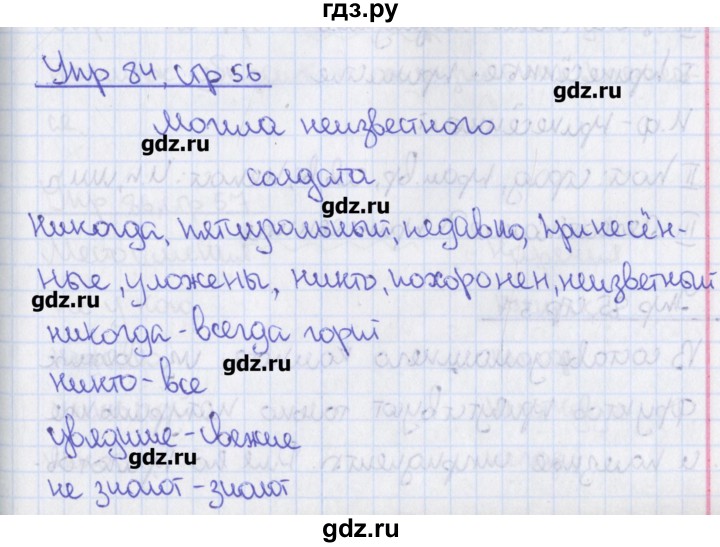 гдз.ру
Упр 84, стр 56
gdz.ru
Могила неизвестного
gdz.ru
солдата
gdz.ru
Никогда, пятиугольный, недавно, принесён-
ные, уложены, никто, похоронен, неизветный
gdz.ru
никогда - всегда горит
gdz.ru
никто - все
увядшие - свежие
gdz.ru
не знают - знают
gdz.ru